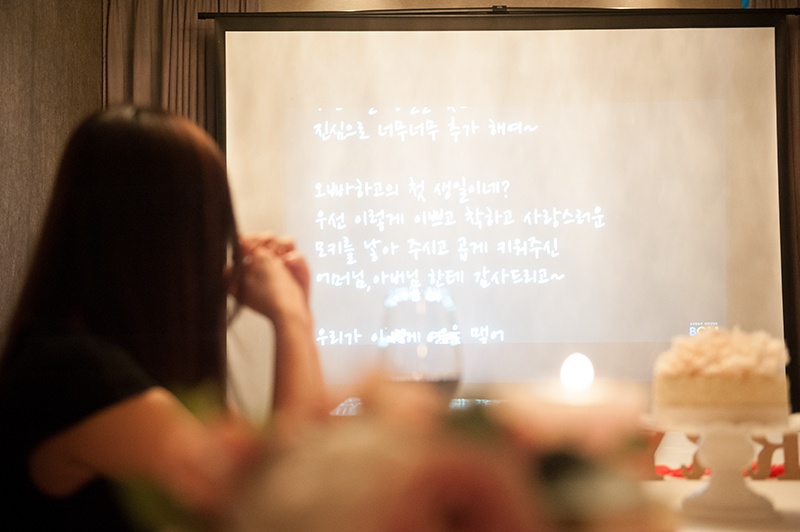 진심으로 너무너무 축가 해여~
오빠하고의 첫 생일이네?
우선 이렇게 이쁘고 착하고 사랑스러운
모키를 낳아 주시고 곱게 키워주신
어머님,아버님 한테 감사드리고~
우리가 맺어